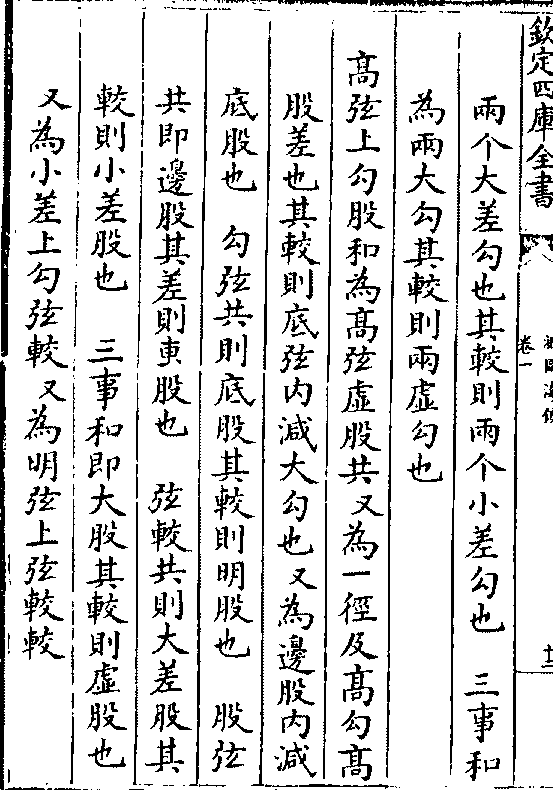 欽定四庫全書
卷一
十三
兩个大差勾也其較則兩个小差勾也　三事和
為兩大勾其較則兩虛勾也
高弦上勾股和為高弦虛股共又為一徑及高勾高
股差也其較則底弦内減大勾也又為邊股内減
底股也　勾弦共則底股其較則明股也　股弦
共即邊股其差則叀股也　弦較共則大差股其
較則小差股也　三事和即大股其較則虛股也
又為小差上勾弦較又為明弦上弦較較